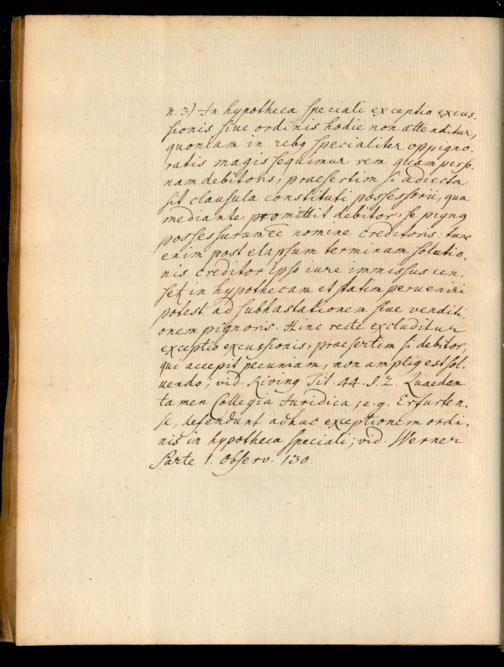 n. 3) In hypotheca speciali exceptio excus-
sionis sive ordinis hodie non attenditur,
quoniam in rebq specialiter oppigno-
ratis magis sequimur rem quam perso-
nam debitoris; praesertim si adiecta
sit clausula constituti possessorii, qua
mediante promittit debitor, se pigng
possessurum ee nomine creditoris: tunc
enim post elapsum terminum solutio-
nis creditor ipso iure immissus cen-
setr in hypothecam et statim pervenire
potest ad subhastationem sive venditi-
onem pignoris. Hinc recte excluditur
exceptio excussionis, praesertim si debitor,
qui accepit pecuniam, non ampliq est sol-
vendo; vid. Tit. 44. §. 2. Quaedam
tamen Collegia Iuridica, e.g. Erfurten-
se, defendunt adhuc exceptionem ordi-
nis in hypotheca speciali; vid. Werner
Parte 1. Observ. 130.